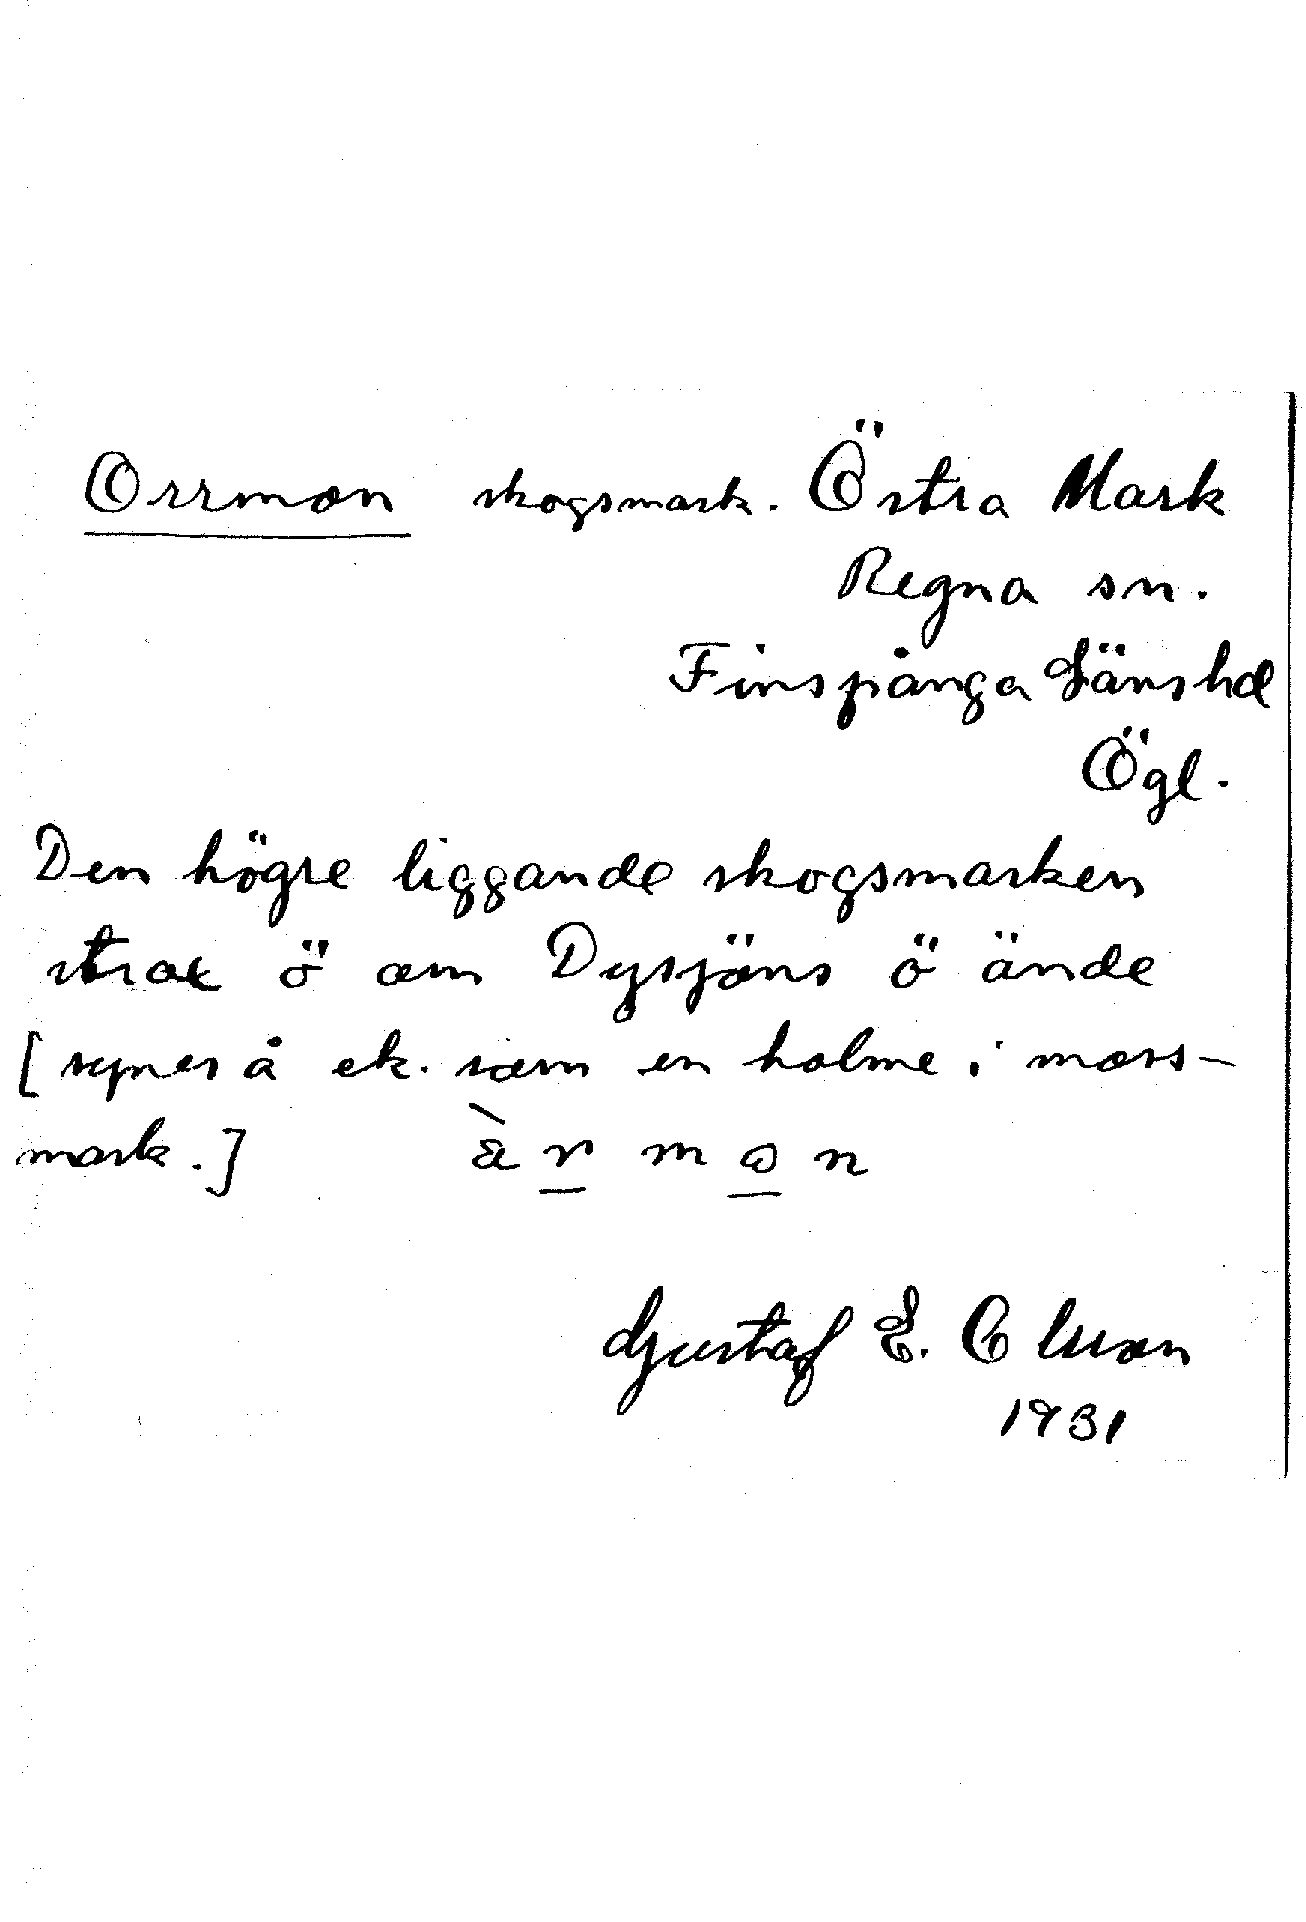 Orrmon skogsmark. Östra Mark
Regna sn.
Finspånga Länshd
Ögl.
Den högre liggande skogsmarken
strax ö om Dysjöns ö ände
[synes å ek. som en holme i moss-
mark.]
Gustaf E. Olsson
1931